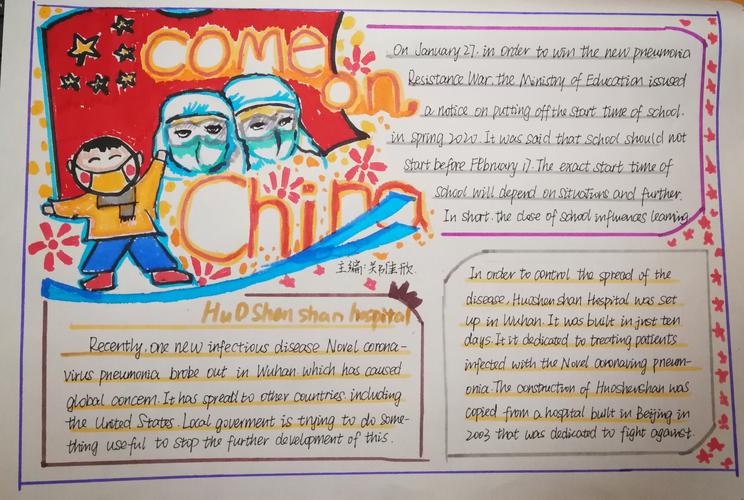 come
on
China
主编:
On January 27, in order to win the new pneumonia
Resistance War, the Ministry of Education issused
a notice on putting off the start time of school.
in spring 2020. It was said that school should not
start before February 17. The exact start time of
school will depend on situations and further.
In short, the close of school influences learning
HuOShenshan hospital
Recently, one new infectious disease Novel corona-
virus pneumonia broke out in Wuhan which has caused
global concern. It has spread to other countries including
the United States. Local goverment is trying to do some-
thing useful to stop the further development of this.
In order to control the spread of the
disease, Huoshenshan Hospital was set
up in Wuhan. It was built in just ten
days. It it dedicated to treating patients
infected with the Novel coronaving pneum-
onia. The construction of Huoshenshan was
copied from a hospital built in Beijing in
2003 that was dedicated to fight against.